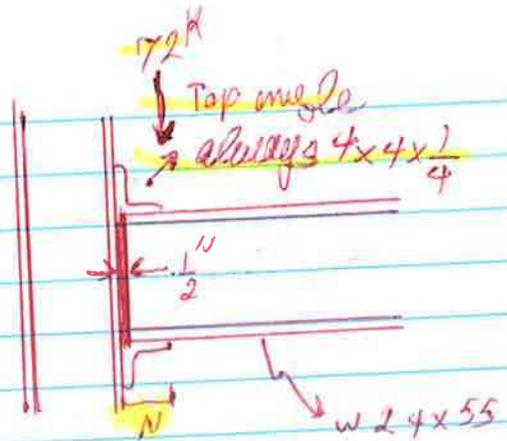 72K
Top angle
always 4x4x1/4
1/2"
N
W 24x55